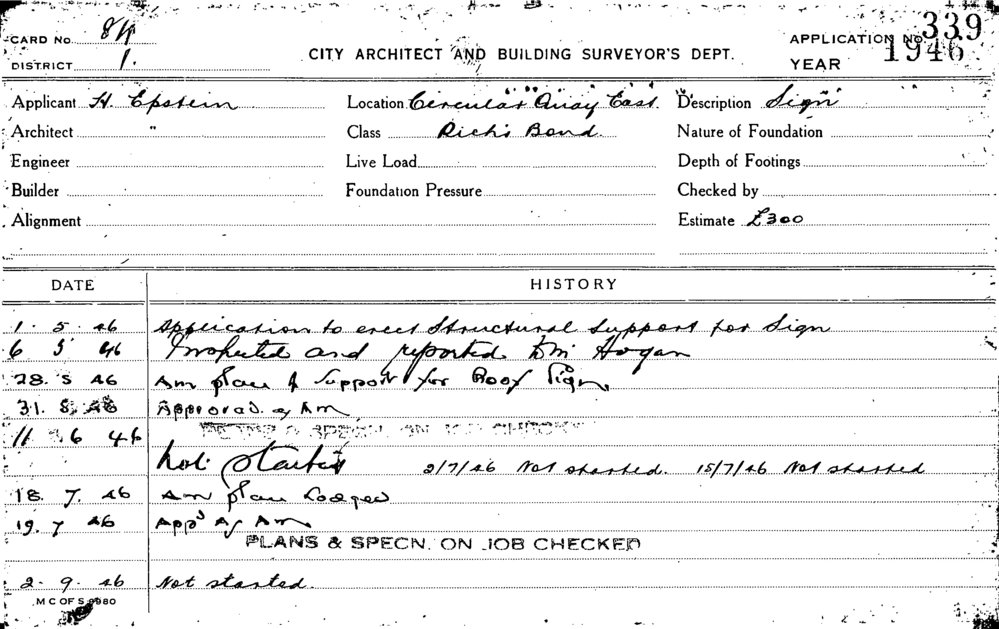 CARD No. 84
DISTRICT 1.
CITY ARCHITECT AND BUILDING SURVEYOR'S DEPT.
APPLICATION No. 339
YEAR 1946
Applicant H. Epstein Location Circular Quay East. Description Sign
Architect " Class Rich's Bond. Nature of Foundation
Engineer Live Load Depth of Footings
Builder Foundation Pressure Checked by
Alignment Estimate £300
DATE HISTORY
1. 5. 46 Application to erect Structural Support for Sign
6 5 46 Inspected and reported Hogan
28. 5 46 Am plan of Support for Roof Sign
31. 5. 46 Approved as Am
11 6 46 PLANS & SPECN. ON JOB CHECKED
Not Started 2/7/46 Not started. 15/7/46 Not started
18. 7. 46 Am plan Lodged
19. 7 46 App'd as Am
PLANS & SPECN. ON JOB CHECKED
2. 9. 46 Not started.
M C OF S 9980